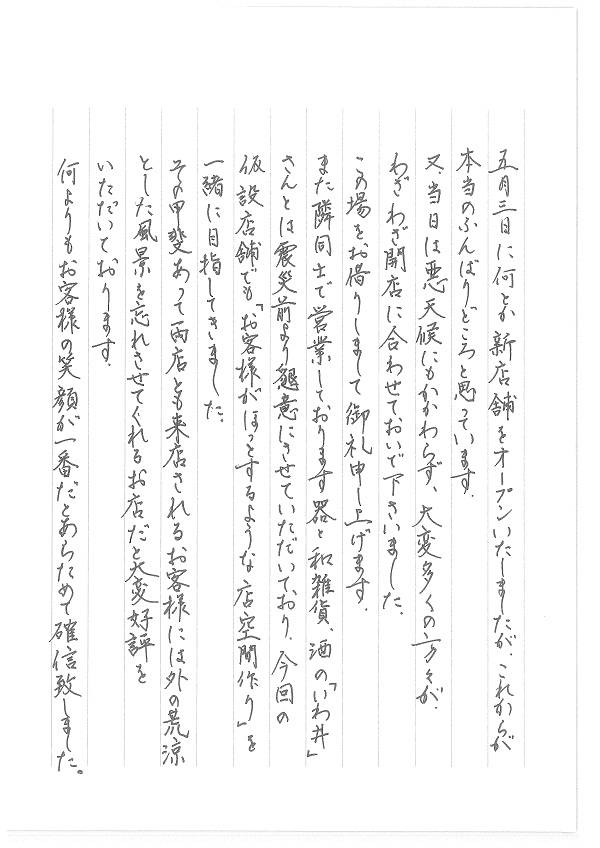 五月三日に何とか新店舗をオープンいたしましたが、これからが
本当のふんばりどころと思っています。
又、当日は悪天候にもかかわらず、大変多くの方々が、
わざわざ開店に合わせておいで下さいました。
この場をお借りしまして御礼申し上げます。
また隣同士で営業しております器と和雑貨、酒の「いわ井」
さんとは震災前より懇意にさせていただいており、今回の
仮設店舗でも「お客様がほっとするような店空間作り」を
一緒に目指してきました。
その甲斐あって両店とも来店されるお客様には外の荒涼
とした風景を忘れさせてくれるお店だと大変好評を
いただいております。
何よりもお客様の笑顔が一番だとあらためて確信致しました。